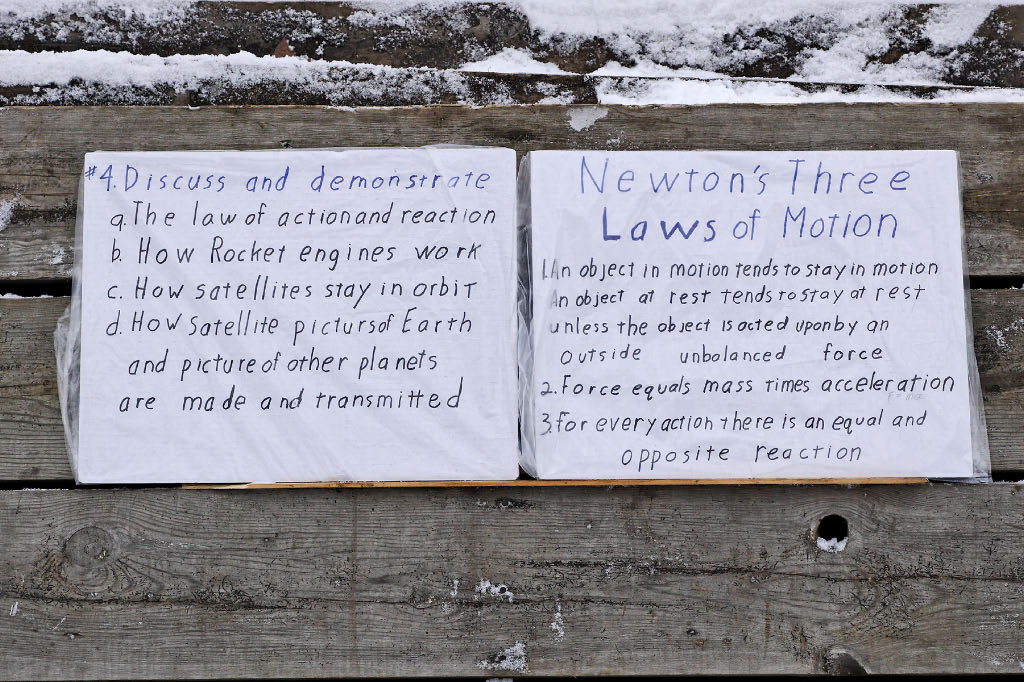 #4. Discuss and demonstrate
a. The law of action and reaction
b. How Rocket engines work
c. How satellites stay in orbit
d. How satellite picturs of Earth
and picture of other planets
are made and transmitted
Newton's Three
Laws of Motion
1. An object in motion tends to stay in motion
An object at rest tends to stay at rest
unless the object is acted upon by an
outside unbolanced force
2. Force equals mass times acceleration
3. For every action there is an equal and
opposite reaction